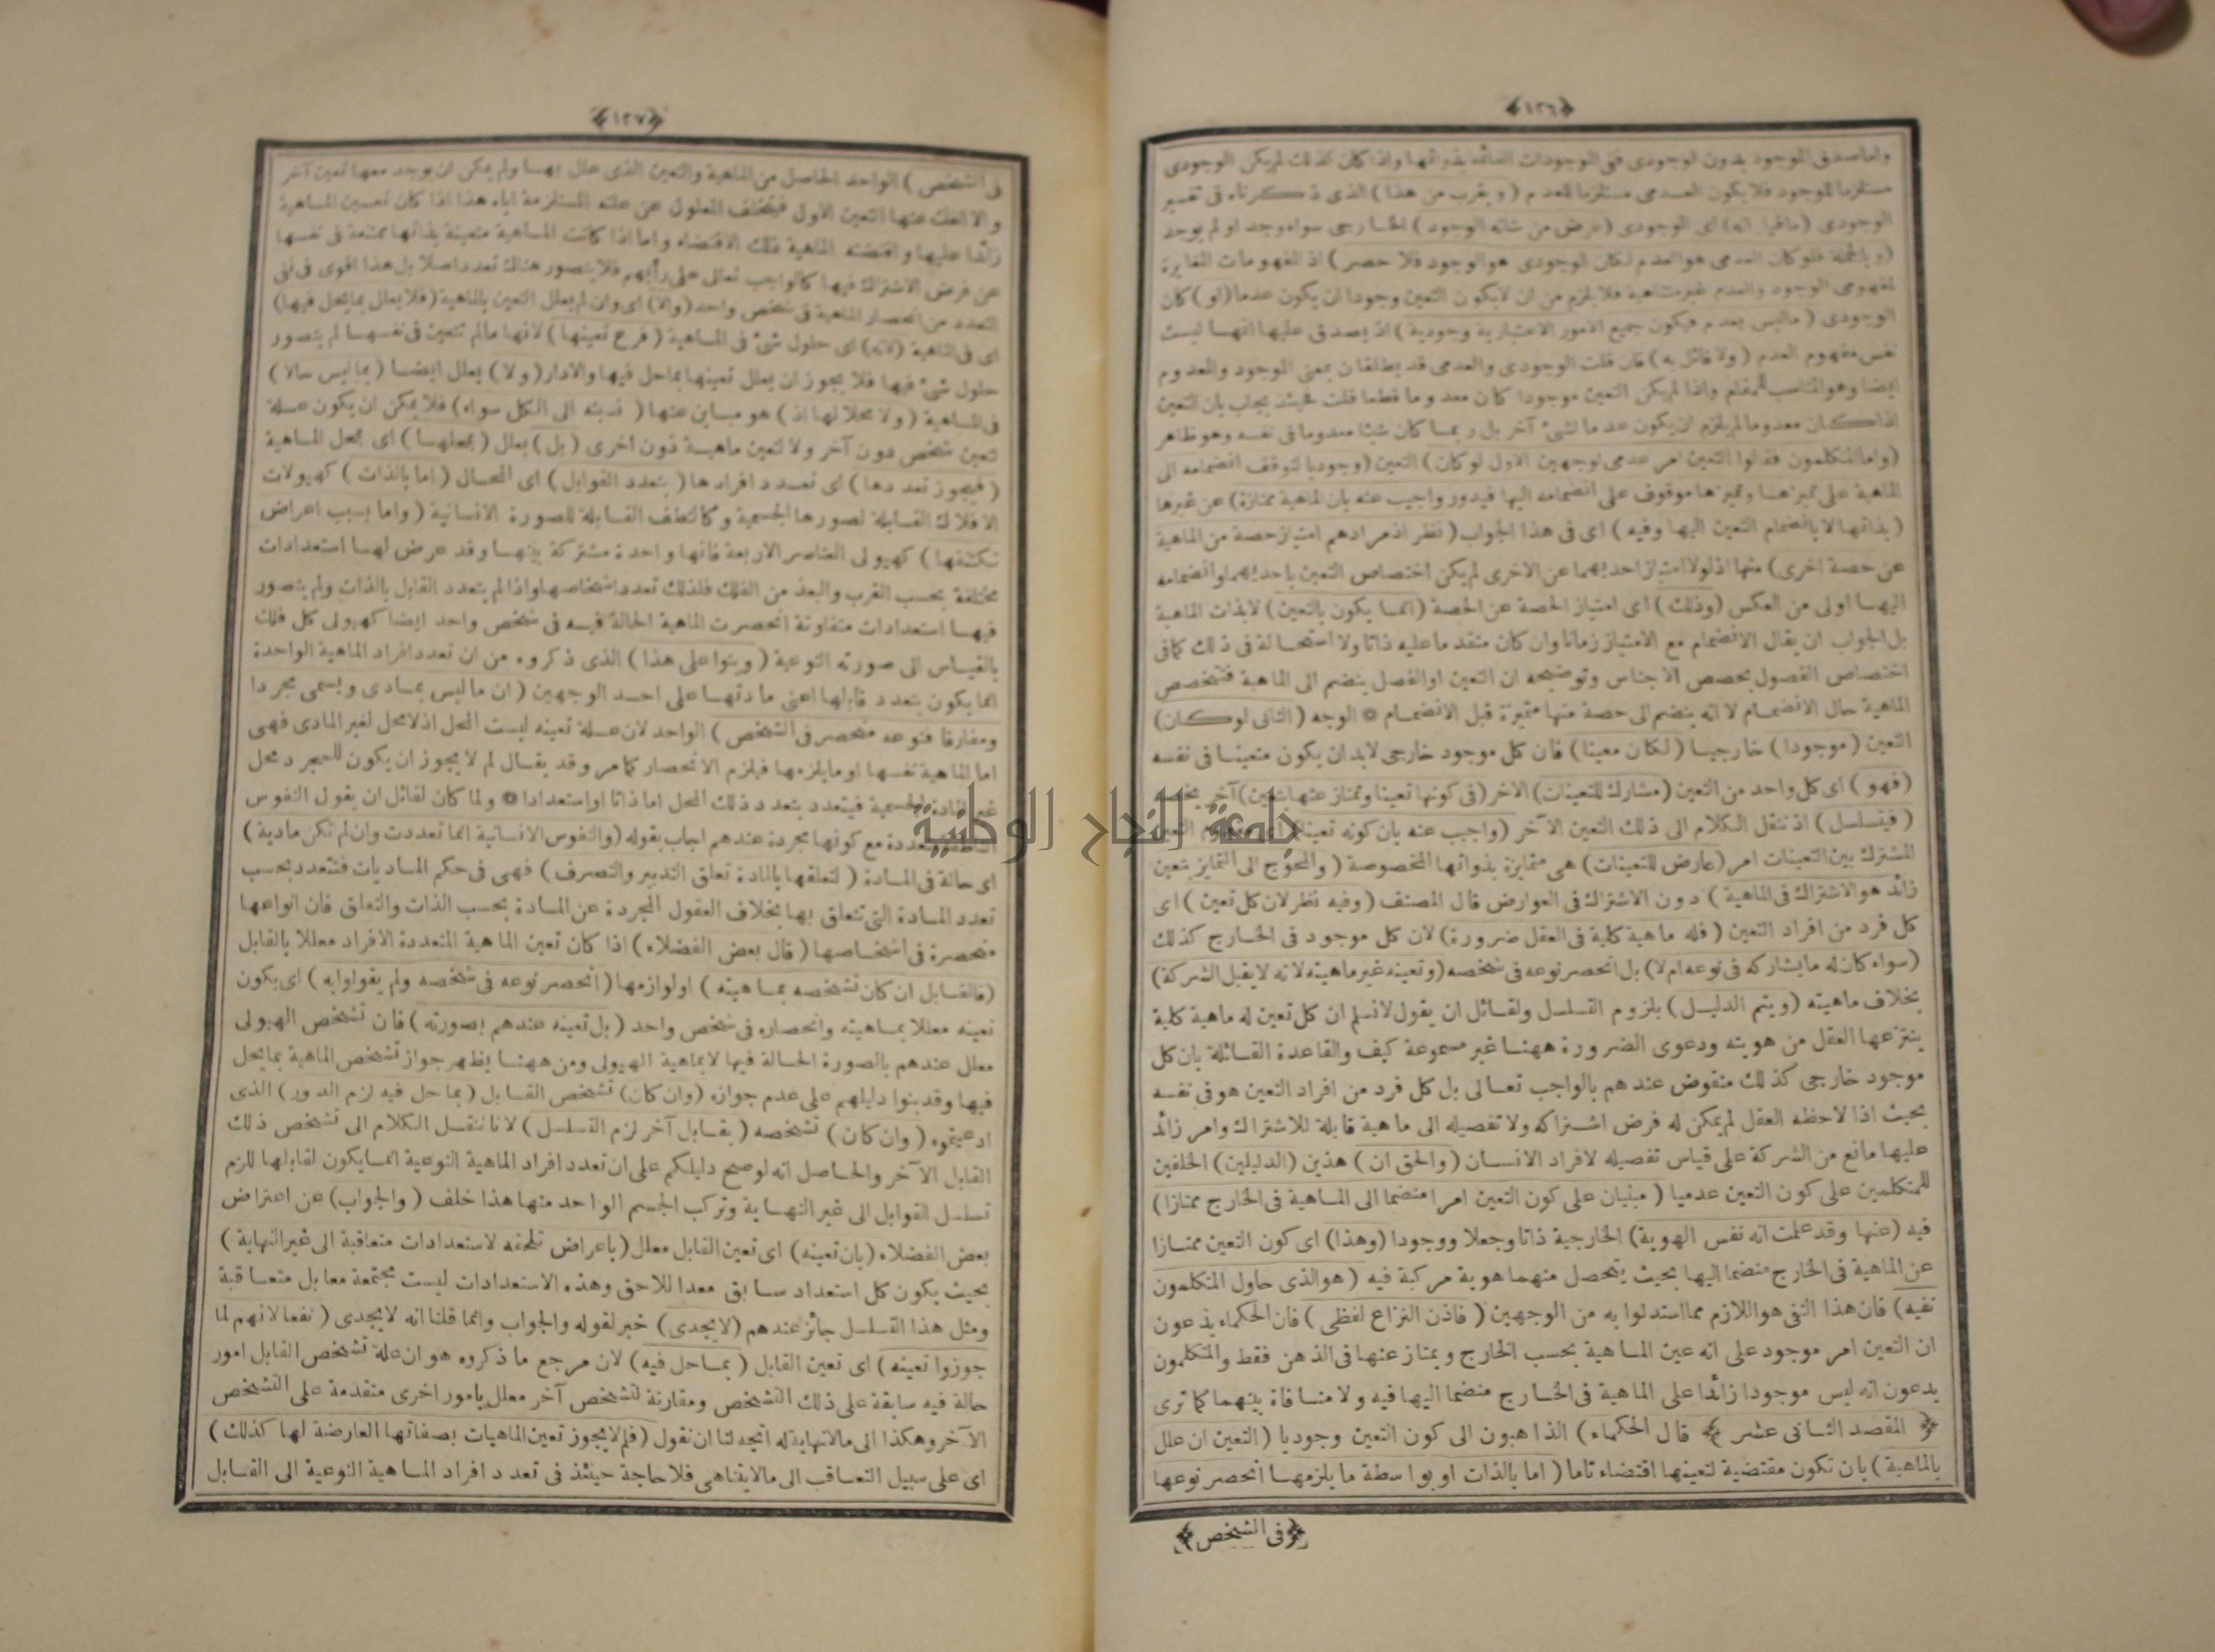 ﴿١٢٦﴾
واما صدق الموجود بدون الوجودى ففى الموجودات القائمة بذواتها واذا كان كذلك لم يكن الوجودى
مستلزما للموجود فلا يكون العدمى مستلزما للعدم (ويقرب من هذا) الذى ذكرناه فى تفسير
الوجودى (ما قيل انه) اى الوجودى (عرض من شانه الوجود) الخارجى سواء وجد او لم يوجد
(وبالجملة فلو كان العدمى هو العدم لكان الوجودى هو الوجود فلا حصر) اذ المفهومات المغايرة
لمفهومى الوجود والعدم غير متناهية فلا يلزم من ان لا يكون التعين وجودا ان يكون عدما (او) كان
الوجودى (ما ليس بعدم فيكون جميع الامور الاعتبارية وجودية) اذ يصدق عليها انها ليست
نفس مفهوم العدم (ولا قائل به) فان قلت الوجودى والعدمى قد يطلقان بمعنى الموجود والمعدوم
ايضا وهو المناسب للمقام واذا لم يكن التعين موجودا كان معدوما قطعا قلت فحينئذ يجاب بان التعين
اذا كان معدوما لم يلزم ان يكون عدما لشئ آخر بل ربما كان شيئا معدوما فى نفسه وهو ظاهر
(واما المتكلمون فقالوا التعين امر عدمى لوجهين الاول لو كان) التعين (وجوديا لتوقف انضمامه الى
الماهية على تميزها وتميزها موقوف على انضمامه اليها فيدور واجيب عنه بان الماهية ممتازة) عن غيرها
(بذاتها لا بانضمام التعين اليها وفيه) اى فى هذا الجواب (نظر اذ مرادهم امتياز حصة من الماهية
عن حصة اخرى) منها اذ لولا امتياز احديهما عن الاخرى لم يكن اختصاص التعين باحديهما وانضمامه
اليها اولى من العكس (وذلك) اى امتياز الحصة عن الحصة (انما يكون بالتعين) لا بذات الماهية
بل الجواب ان يقال الانضمام مع الامتياز زمانا وان كان متقدما عليه ذاتا ولا استحالة فى ذلك كما فى
اختصاص الفصول بحصص الاجناس وتوضيحه ان التعين او الفصل ينضم الى الماهية فتتخصص
الماهية حال الانضمام لا انه ينضم الى حصة منها متميزة قبل الانضمام ۞ الوجه (الثانى لو كان)
التعين (موجودا) خارجيا (لكان معينا) فان كل موجود خارجى لابد ان يكون متعينا فى نفسه
(فهو) اى كل واحد من التعين (مشارك للتعينات) الاخر (فى كونها تعينا وتمتاز عنها بتعين) آخر يخصه
(فيتسلسل) اذ ننقل الكلام الى ذلك التعين الآخر (واجيب عنه بان كونه تعينا) اى مفهوم التعين
المشترك بين التعينات امر (عارض للتعينات) هى متمايزة بذواتها المخصوصة (والمحوج الى التمايز بتعين
زائد هو الاشتراك فى الماهية) دون الاشتراك فى العوارض قال المصنف (وفيه نظر لان كل تعين) اى
كل فرد من افراد التعين (فله ماهية كلية فى العقل ضرورة) لان كل موجود فى الخارج كذلك
(سواء كان له ما يشاركه فى نوعه ام لا) بل انحصر نوعه فى شخصه (وتعينه غير ماهيته لانه لا يقبل الشركة)
بخلاف ماهيته (ويتم الدليل) بلزوم التسلسل ولقائل ان يقول لا نسلم ان كل تعين له ماهية كلية
ينتزعها العقل من هويته ودعوى الضرورة ههنا غير مسموعة كيف والقاعدة القائلة بان كل
موجود خارجى كذلك منقوض عندهم بالواجب تعالى بل كل فرد من افراد التعين هو فى نفسه
بحيث اذا لاحظه العقل لم يمكن له فرض اشتراكه ولا تفصيله الى ماهية قابلة للاشتراك وامر زائد
عليها مانع من الشركة على قياس تفصيله لافراد الانسان (والحق ان) هذين (الدليلين) الخلفين
للمتكلمين على كون التعين عدميا (مبنيان على كون التعين امرا منضما الى الماهية فى الخارج ممتازا)
فيه (عنها وقد علمت انه نفس الهوية) الخارجية ذاتا وجعلا ووجودا (وهذا) اى كون التعين ممتازا
عن الماهية فى الخارج منضما اليها بحيث يتحصل منهما هوية مركبة فيه (هو الذى حاول المتكلمون
نفيه) فان هذا النفى هو اللازم مما استدلوا به من الوجهين (فاذن النزاع لفظى) فان الحكماء يدعون
ان التعين امر موجود على انه عين الماهية بحسب الخارج ويمتاز عنها فى الذهن فقط والمتكلمون
يدعون انه ليس موجودا زائدا على الماهية فى الخارج منضما اليها فيه ولا منافاة بينهما كما ترى
﴿المقصد الثانى عشر﴾ قال الحكماء) الذاهبون الى كون التعين وجوديا (التعين ان علل
بالماهية) بان تكون مقتضية لتعينها اقتضاء تاما (اما بالذات او بواسطة ما يلزمها انحصر نوعها
﴿فى الشخص﴾
﴿١٢٧﴾
فى الشخص) الواحد الحاصل من الماهية والتعين الذى علل بها ولم يمكن ان يوجد معها تعين آخر
والا انفك عنها التعين الاول فيتخلف المعلول عن علته المستلزمة اياه هذا اذا كان تعين الماهية
زائدا عليها واقتضته الماهية ذلك الاقتضاء واما اذا كانت الماهية متعينة بذاتها ممتنعة فى نفسها
عن فرض الاشتراك فيها كالواجب تعالى على رأيهم فلا يتصور هناك تعدد اصلا بل هذا اقوى فى نفى
التعدد من انحصار الماهية فى شخص واحد (والا) اى وان لم يعلل التعين بالماهية (فلا يعلل بما يحل فيها)
اى فى الماهية (لانه) اى حلول شئ فى الماهية (فرع تعينها) لانها ما لم تتعين فى نفسها لم يتصور
حلول شئ فيها فلا يجوز ان يعلل تعينها بما حل فيها والا دار (ولا) يعلل ايضا (بما ليس حالا)
فى الماهية (ولا محلا لها اذ) هو مباين عنها (نسبته الى الكل سواء) فلا يمكن ان يكون علة
لتعين شخص دون آخر ولا لتعين ماهية دون اخرى (بل) يعلل (بمحلها) اى بمحل الماهية
(فيجوز تعددها) اى تعدد افرادها (بتعدد القوابل) اى المحال (اما بالذات) كهيولات
الافلاك القابلة لصورها الجسمية وكالنطف القابلة للصورة الانسانية (واما بسبب اعراض
تكتنفها) كهيولى العناصر الاربعة فانها واحدة مشتركة بينها وقد عرض لها استعدادات
مختلفة بحسب القرب والبعد من الفلك فلذلك تعدد اشخاصها واذا لم يتعدد القابل بالذات ولم يتصور
فيها استعدادات متفاوتة انحصرت الماهية الحالة فيه فى شخص واحد ايضا كهيولى كل فلك
بالقياس الى صورته النوعية (وبنوا على هذا) الذى ذكروه من ان تعدد افراد الماهية الواحدة
انما يكون بتعدد قابلها اعنى مادتها على احد الوجهين (ان ما ليس بمادى ويسمى مجردا
ومفارقا فنوعه منحصر فى الشخص) الواحد لان علة تعينه ليست المحل اذ لا محل لغير المادى فهى
اما الماهية نفسها او ما يلزمها فيلزم الانحصار كما مر وقد يقال لم لا يجوز ان يكون للمجرد محل
غير المادة الجسمية فيتعدد بتعدد ذلك المحل اما ذاتا او استعدادا ۞ ولما كان لقائل ان يقول النفوس
الناطقة متعددة مع كونها مجردة عندهم اجاب بقوله (والنفوس الانسانية انما تعددت وان لم تكن مادية)
اى حالة فى المادة (لتعلقها بالمادة تعلق التدبير والتصرف) فهى فى حكم الماديات فتتعدد بحسب
تعدد المادة التى تتعلق بها بخلاف العقول المجردة عن المادة بحسب الذات والتعلق فان انواعها
منحصرة فى اشخاصها (قال بعض الفضلاء) اذا كان تعين الماهية المتعددة الافراد معللا بالقابل
(فالقابل ان كان تشخصه بماهيته) او لوازمها (انحصر نوعه فى شخصه ولم يقولوا به) اى بكون
تعينه معللا بماهيته وانحصاره فى شخص واحد (بل تعينه عندهم بصورته) فان تشخص الهيولى
معلل عندهم بالصورة الحالة فيها لا بماهية الهيولى ومن ههنا يظهر جواز تشخص الماهية بما يحل
فيها وقد بنوا دليلهم على عدم جوازه (وان كان) تشخص القابل (بما حل فيه لزم الدور) الذى
ادعيتموه (وان كان) تشخصه (بقابل آخر لزم التسلسل) لانا ننقل الكلام الى تشخص ذلك
القابل الآخر والحاصل انه لو صح دليلكم على ان تعدد افراد الماهية النوعية انما يكون لقابلها للزم
تسلسل القوابل الى غير النهاية وتركب الجسم الواحد منها هذا خلف (والجواب) عن اعتراض
بعض الفضلاء (بان تعينه) اى تعين القابل معلل (باعراض تلحقه لاستعدادات متعاقبة الى غير النهاية)
بحيث يكون كل استعداد سابق معدا للاحق وهذه الاستعدادات ليست مجتمعة معا بل متعاقبة
ومثل هذا التسلسل جائز عندهم (لا يجدى) خبر لقوله والجواب وانما قلنا انه لا يجدى (نفعا لانهم لما
جوزوا تعينه) اى تعين القابل (بما حل فيه) لان مرجع ما ذكروه هو ان علة تشخص القابل امور
حالة فيه سابقة على ذلك التشخص ومقارنة لتشخص آخر معلل بامور اخرى متقدمة على التشخص
الآخر وهكذا الى ما لا نهاية له اتجه لنا ان نقول (فلم لا يجوز تعين الماهيات بصفاتها العارضة لها كذلك)
اى على سبيل التعاقب الى ما لا يتناهى فلا حاجة حينئذ فى تعدد افراد الماهية النوعية الى القابل
جامعة النجاح الوطنية